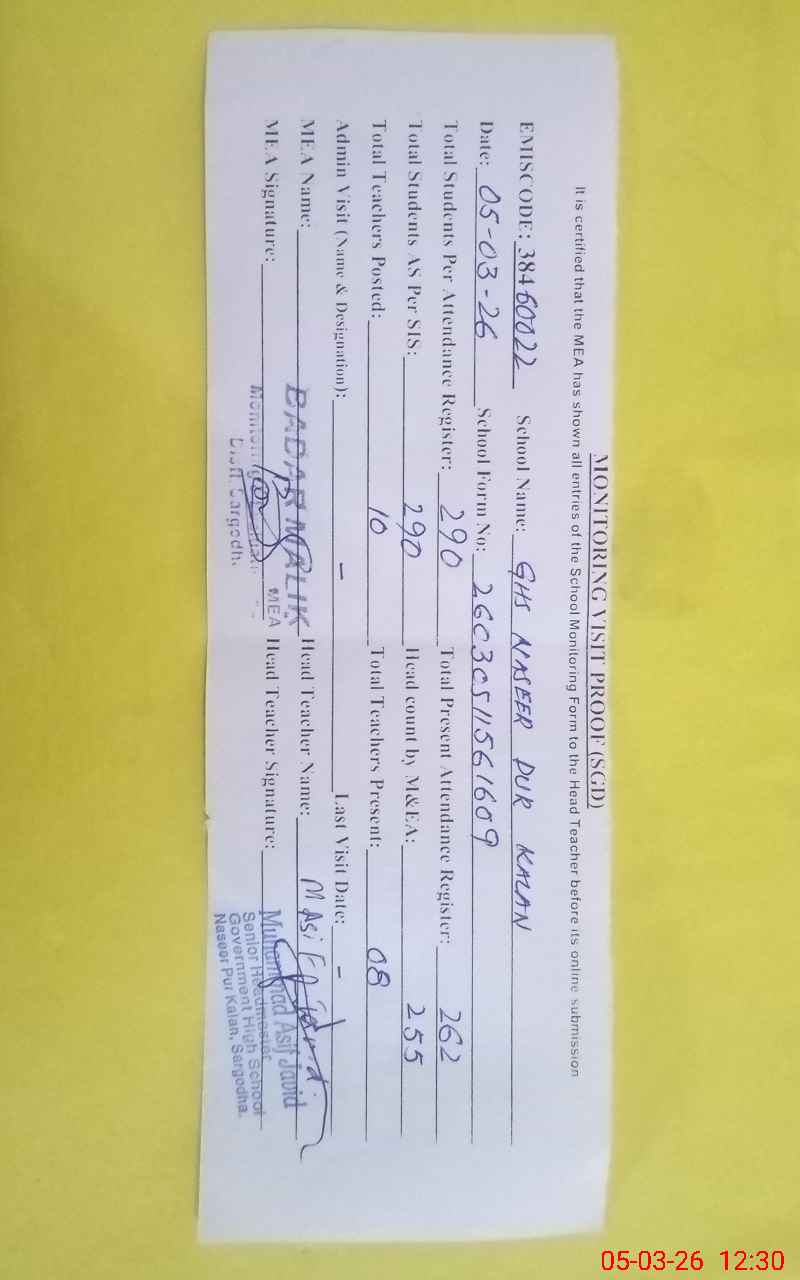 MONITORING VISIT PROOF (SGD)
It is certified that the MEA has shown all entries of the School Monitoring Form to the Head Teacher before its online submission
EMISCODE: 38460022 School Name: GHS NASEER PUR KALAN
Date: 05-03-26 School Form No: 26C30511561609
Total Students Per Attendance Register: 290 Total Present Attendance Register: 262
Total Students AS Per SIS: 290 Head count by M&EA: 255
Total Teachers Posted: 10 Total Teachers Present: 08
Admin Visit (Name & Designation): - Last Visit Date: -
MEA Name: BADAR MALIK Head Teacher Name: M Asif Javid
MEA Signature: MEA Head Teacher Signature:
Distt. Sargodha
Muhammad Asif Javid
Senior Headmaster
Government High School
Naseer Pur Kalan, Sargodha.
05-03-26 12:30